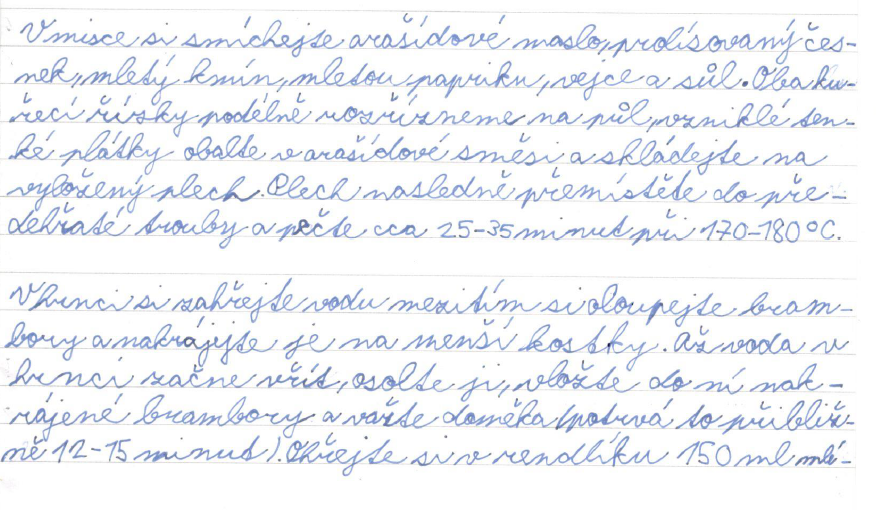 V misce si smíchejte arašídové maslo, prolisovaný čes-
nek, mletý kmín, mletou papriku, vejce a sůl. Oba ku-
řecí řízky podélně rozřízneme na půl, vzniklé ten-
ké plátky obalte v arašídové směsi a skládejte na
vyložený plech. Plech nasledně přemístěte do pře-
dehřaté trouby a pečte cca 25-35 minut při 170-180°C.
V hrnci si zahřejte vodu mezitím si oloupejte bram-
bory a nakrájejte je na menší kostky. Až voda v
hrnci začne vřít, osolte ji, vložte do ní nak-
rájené brambory a vařte doměka (potrvá to přibliž-
ně 12-15 minut). Ohřejte si v rendlíku 150 ml mlé-